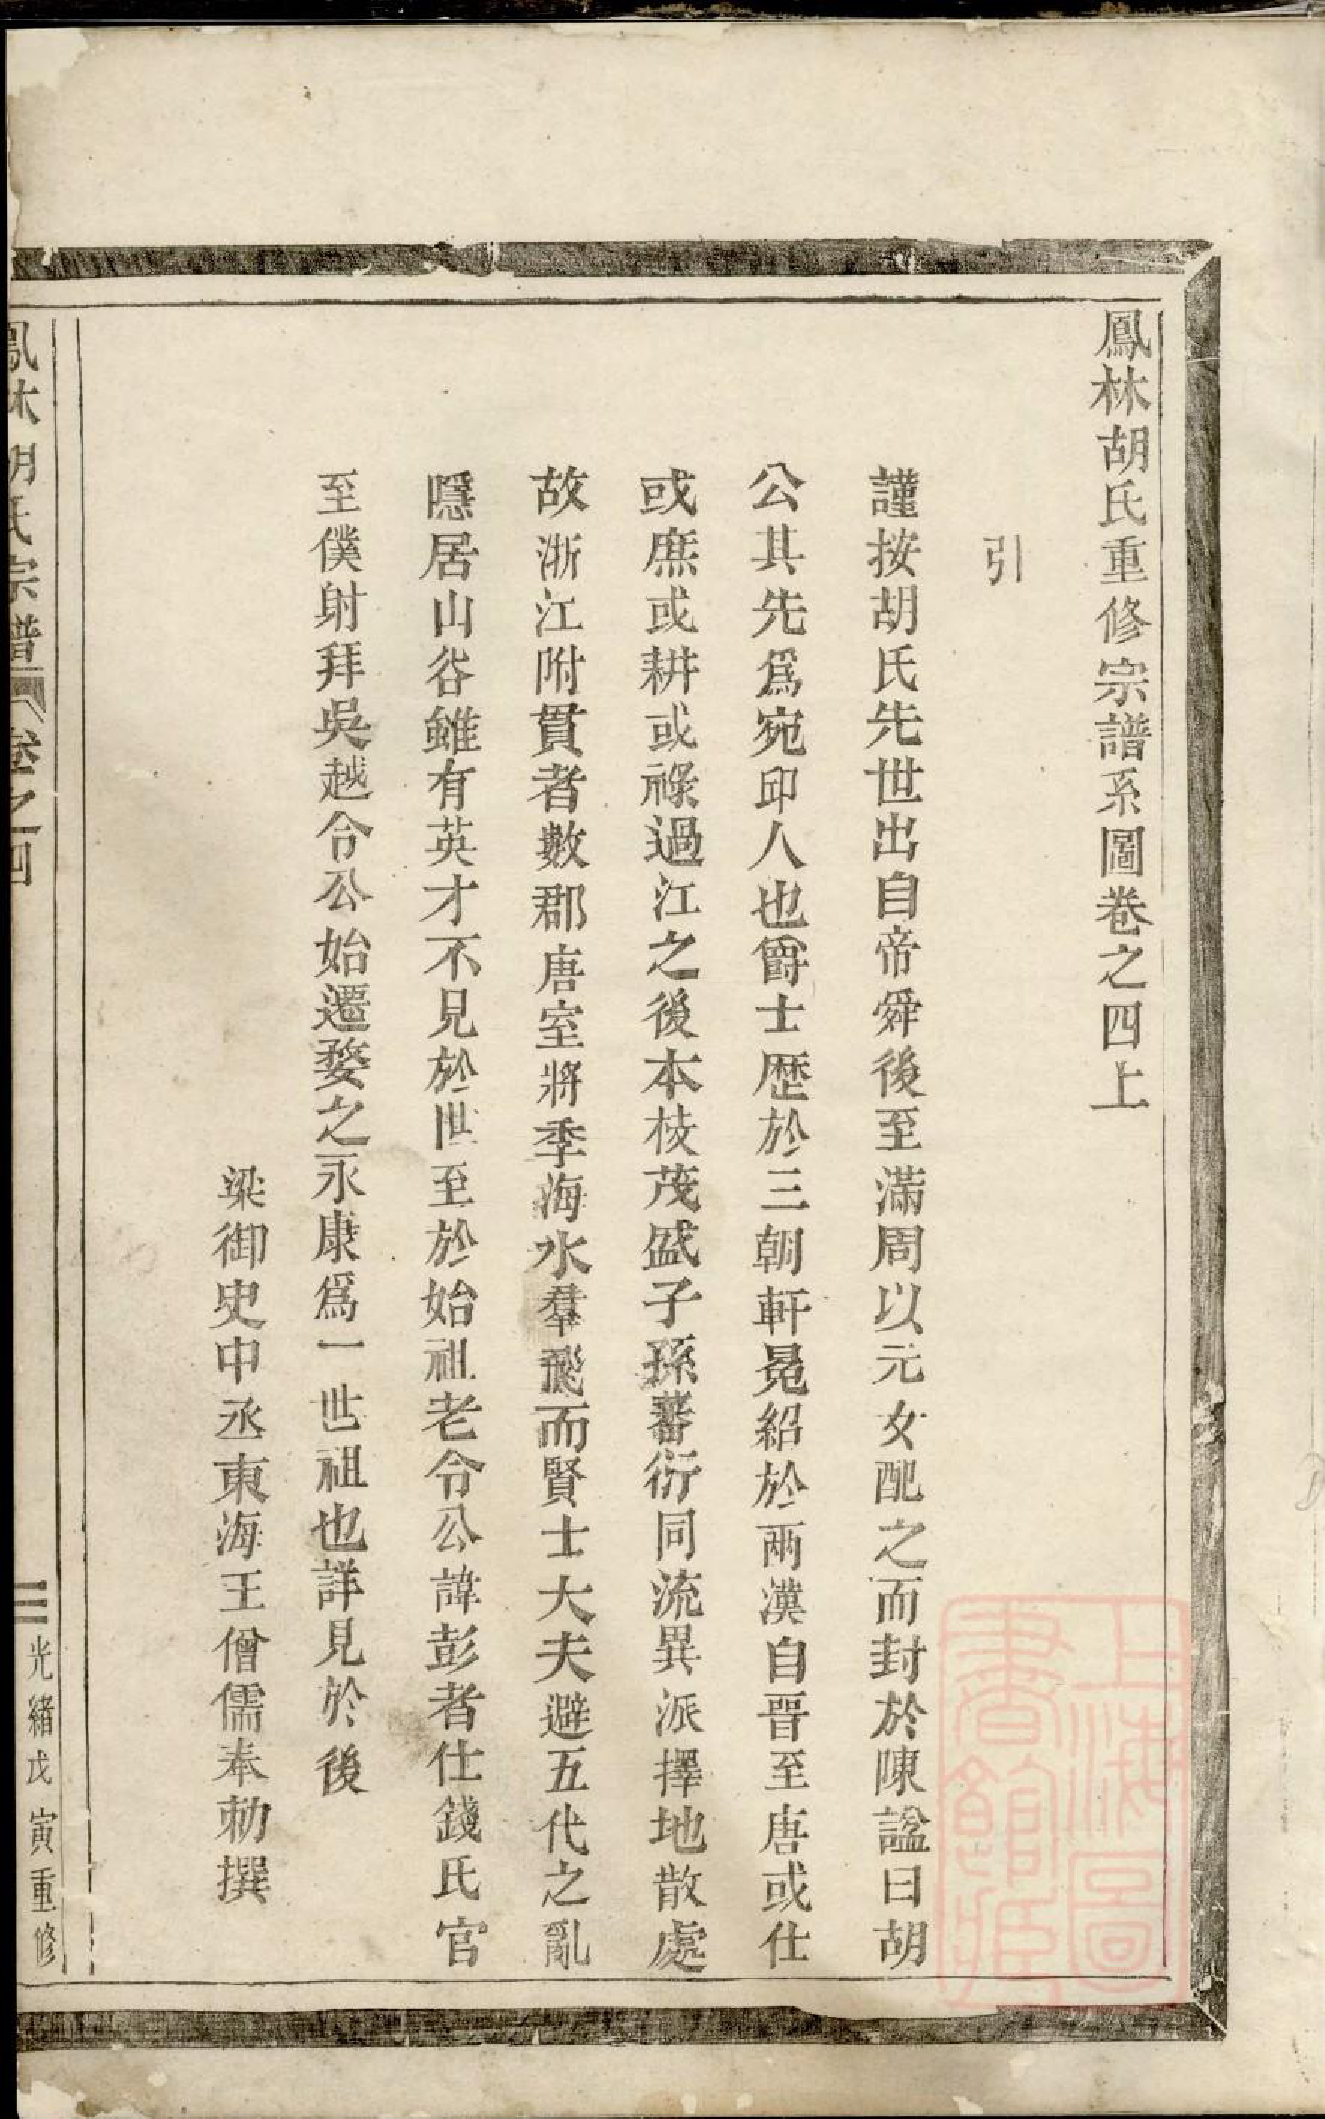 鳳林胡氏重修宗譜系圖卷之四上
引
謹按胡氏先世出自帝舜後至滿周以元女配之而封於陳諡曰胡
公其先爲宛邱人也爵士歷於三朝軒冕紹於兩漢自晉至唐或仕
或庶或耕或祿過江之後本枝茂盛子孫蕃衍同流異派擇地散處
故浙江附貫者數郡唐室將季海水羣飛而賢士大夫避五代之亂
隱居山谷雖有英才不見於世至於始祖老令公諱彭者仕錢氏官
至僕射拜吳越令公始遷婺之永康爲一世祖也詳見於後
梁御史中丞東海王僧儒奉勅撰
鳳林胡氏宗譜 卷之四 三 光緒戊寅重修
上海圖書館藏